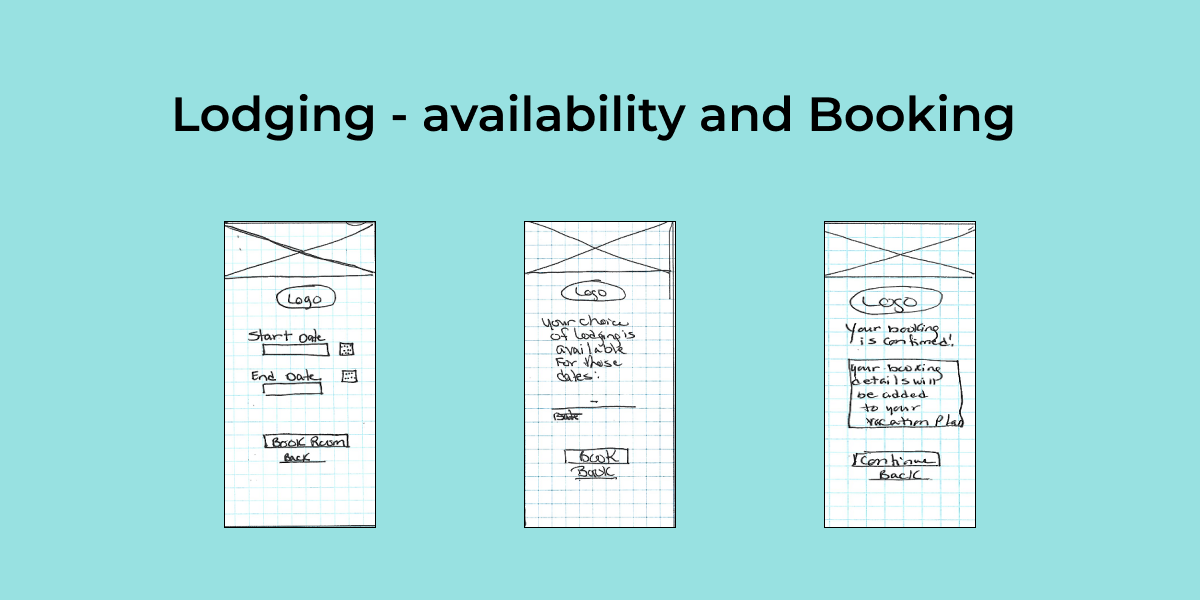 Lodging - availability and Booking
Logo
Start Date
End Date
Book Room
Back
Logo
Your choice
of lodging is
available
For these
dates:
Book
Back
Logo
Your booking
is confirmed!
your booking
details will
be added
to your
vacation Plan
Continue
Back